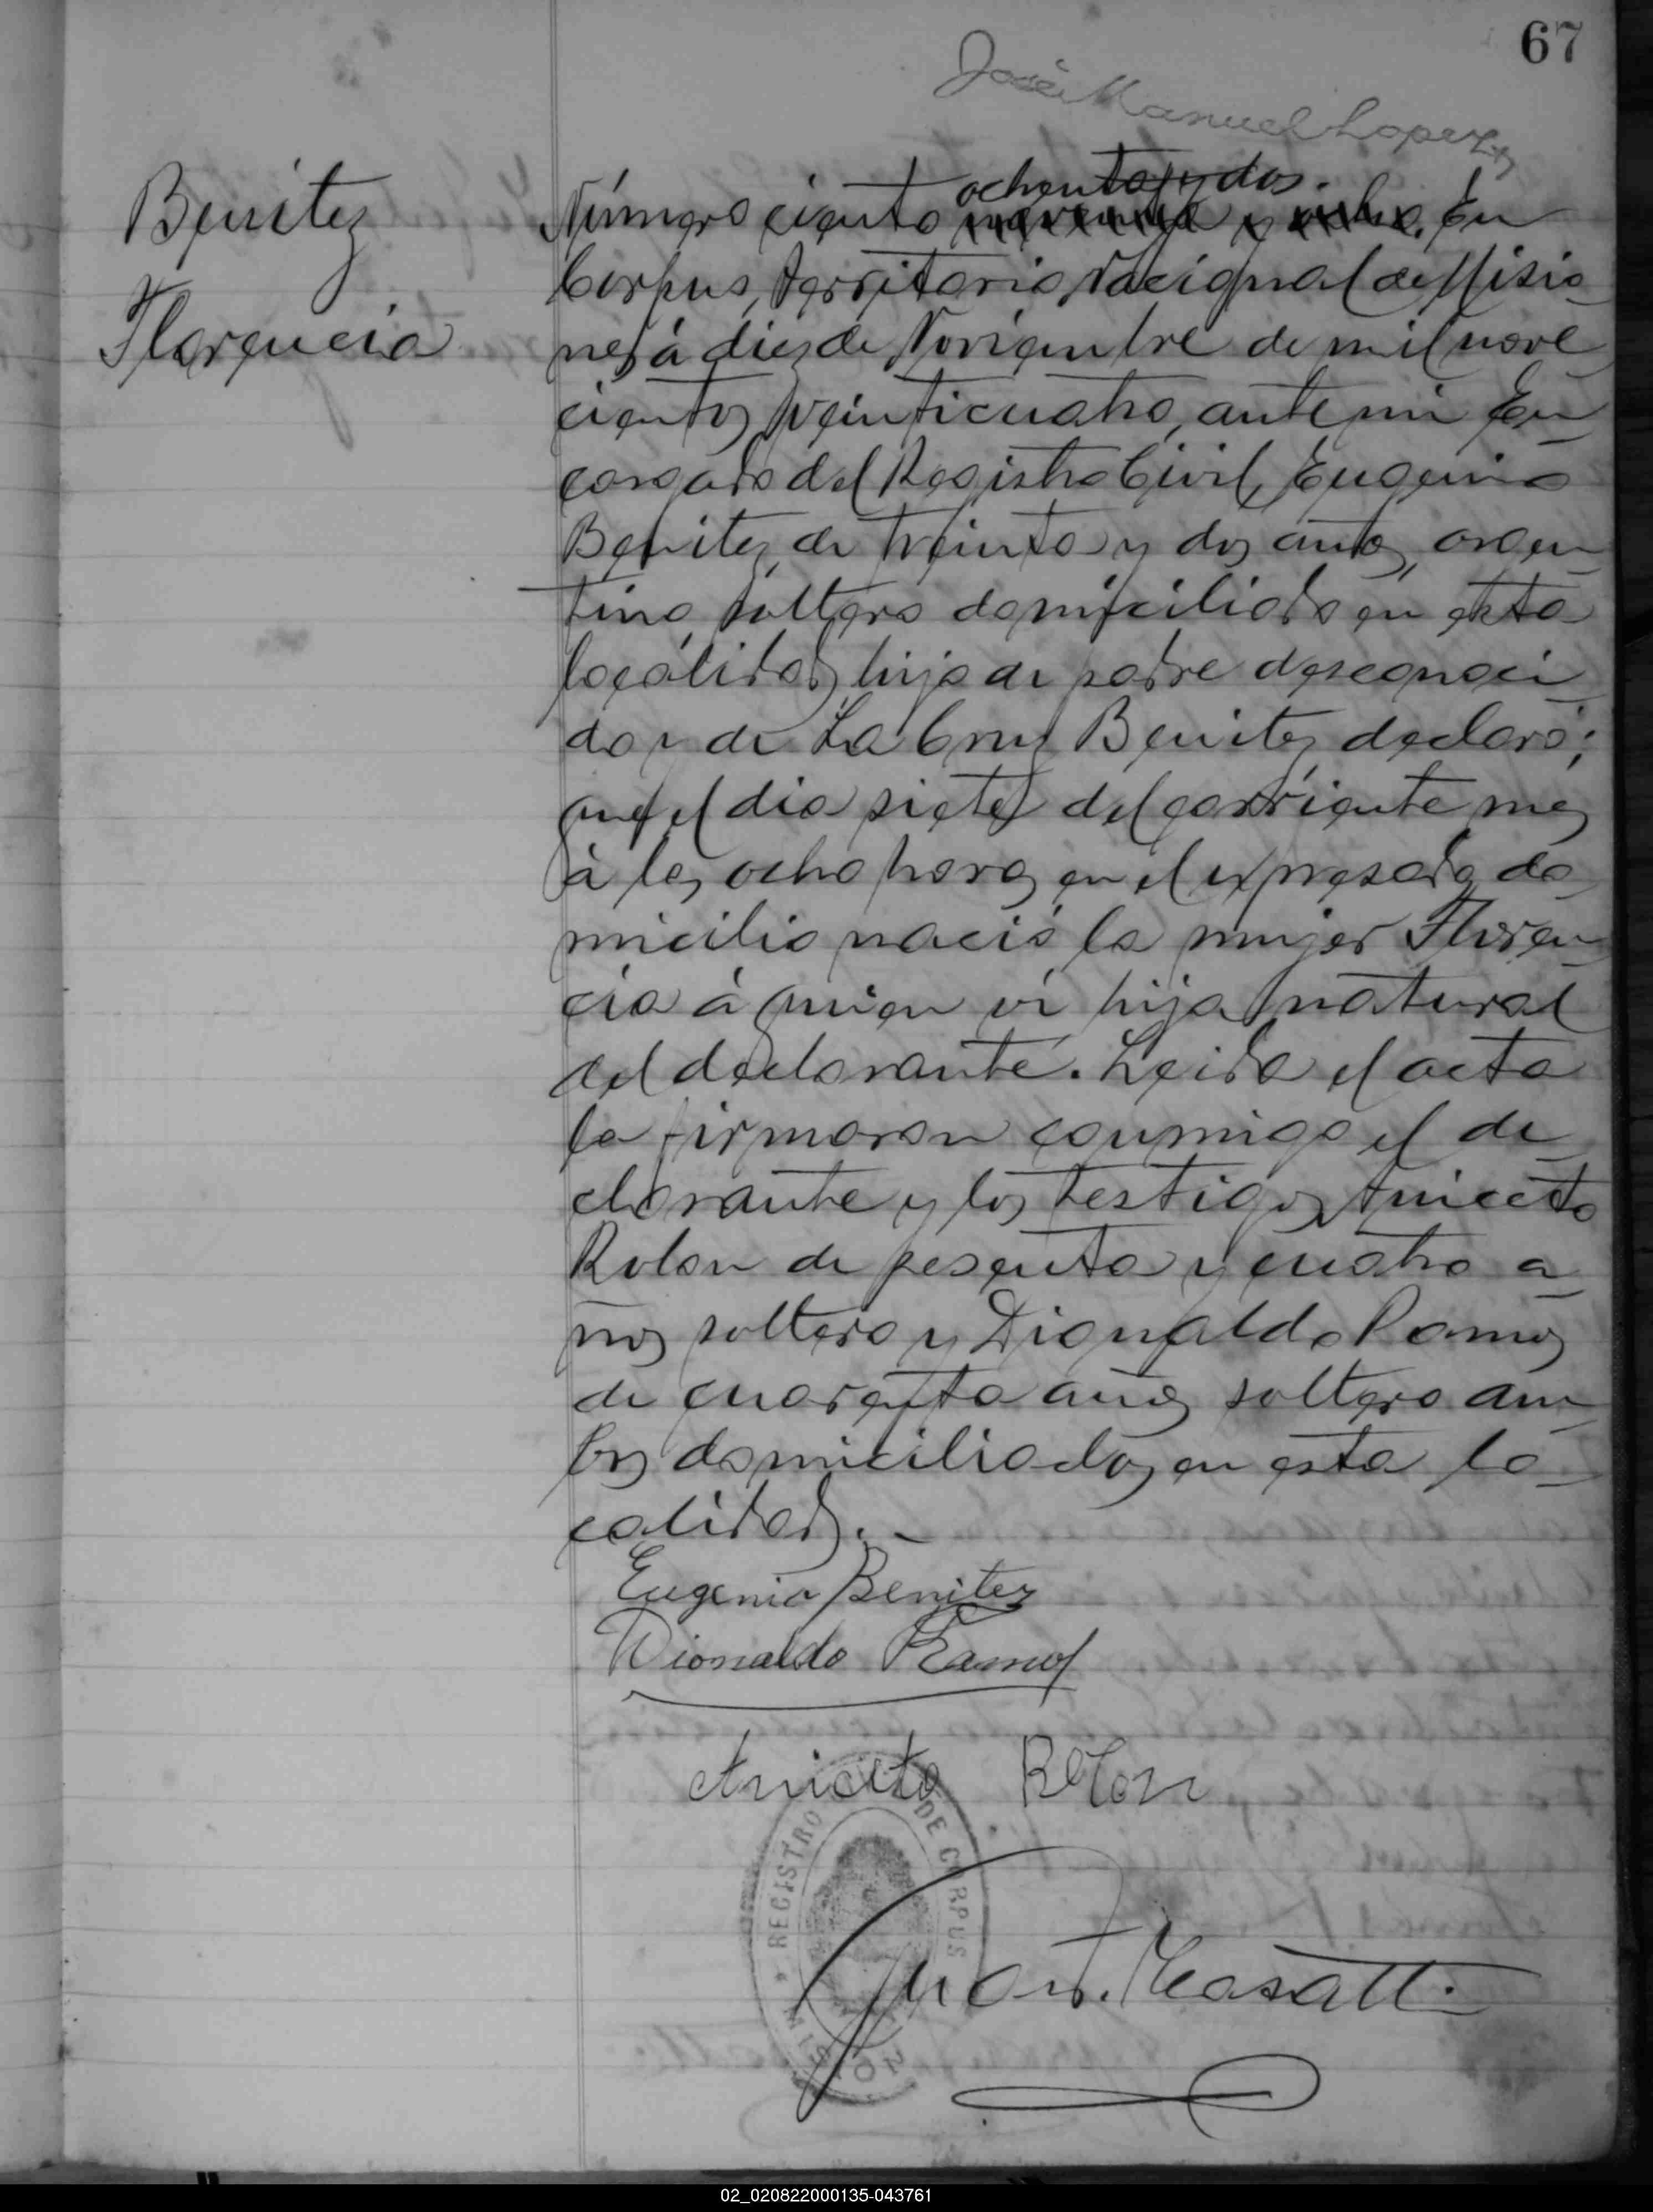 67
José Manuel Lopez
Benitez
Florencia
ochenta y dos.
Número ciento noventa y ocho. En
Corpus, Territorio Nacional de Misio-
nes, á diez de Noviembre de mil nove-
cientos veinticuatro, ante mi En-
cargado del Registro Civil, Eugenio
Benitez, de treinta y dos años, argen-
tino, soltero domiciliado en esta
localidad, hijo de padre desconoci-
do y de La Cruz Benitez, declaró;
que el dia siete del corriente mes
á las ocho horas en el expresado do-
micilio nació la mujer Floren-
cia á quien ví hija natural
del declarante. Leida el acta
la firmaron conmigo el de-
clarante y los testigos, Aniceto
Rolon de sesenta y cuatro a-
ños soltero y Dionaldo Ramos
de cuarenta años soltero am-
bos domiciliados en esta lo-
calidad.-
Eugenio Benitez
Dionaldo Ramos
Aniceto Rolon
REGISTRO DE CORPUS
Juan T. Casatti
02_020822000135-043761